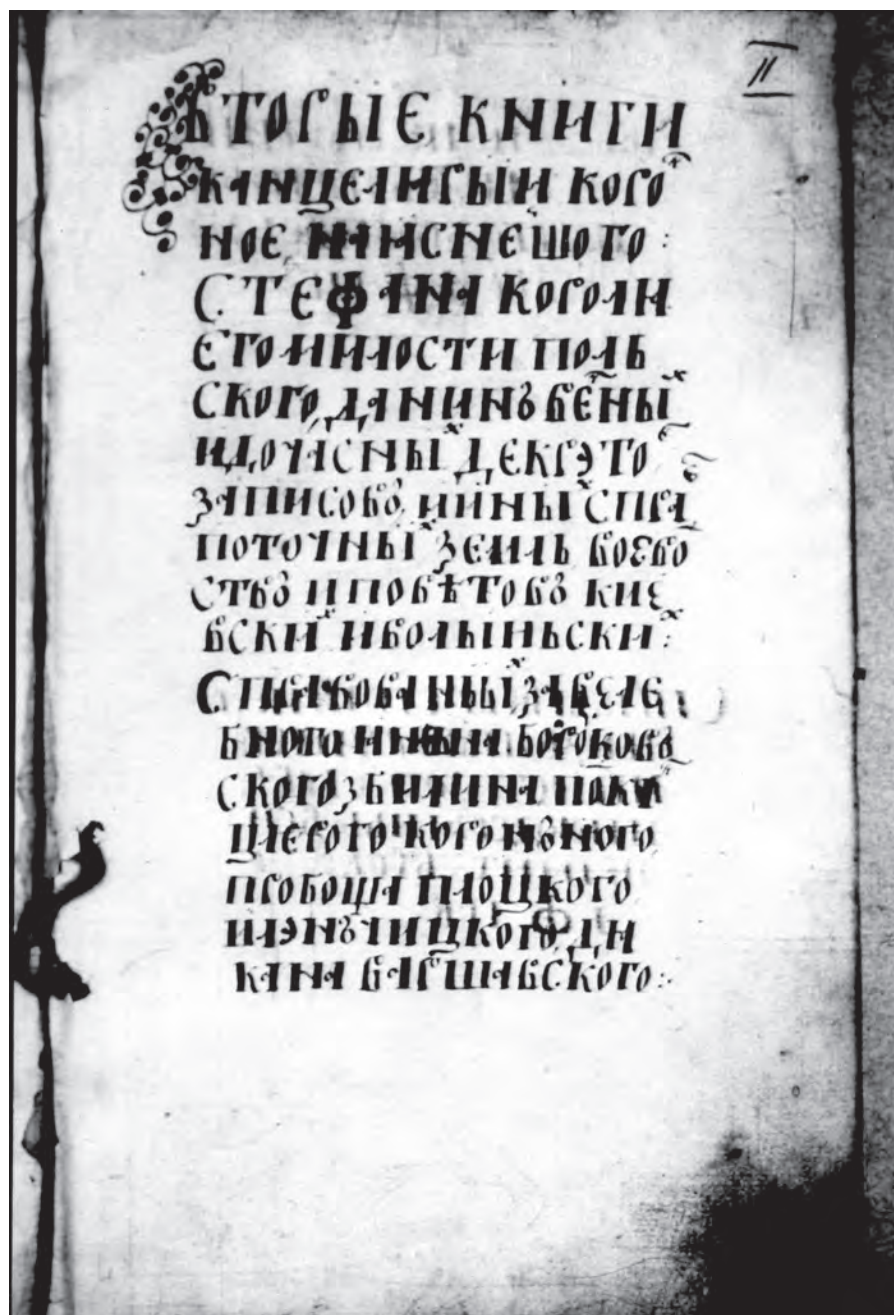 II
Вторые книги
канцелярыи коро
ное наяснешого
Стефана короля
его милости поль
ского, данинъ вечны х
и дочасны х декрэто в
записовъ, и ины х спра в
поточны х земль воево
ствъ и поветовъ кие
вски х и волыньски х:
справованы х за веле
бного Яна Боруковъ
ского з Белина по д ка н
цлерого короньного
пробоща плоцкого
и лэнъчицкого, дзи
кана варшавского: